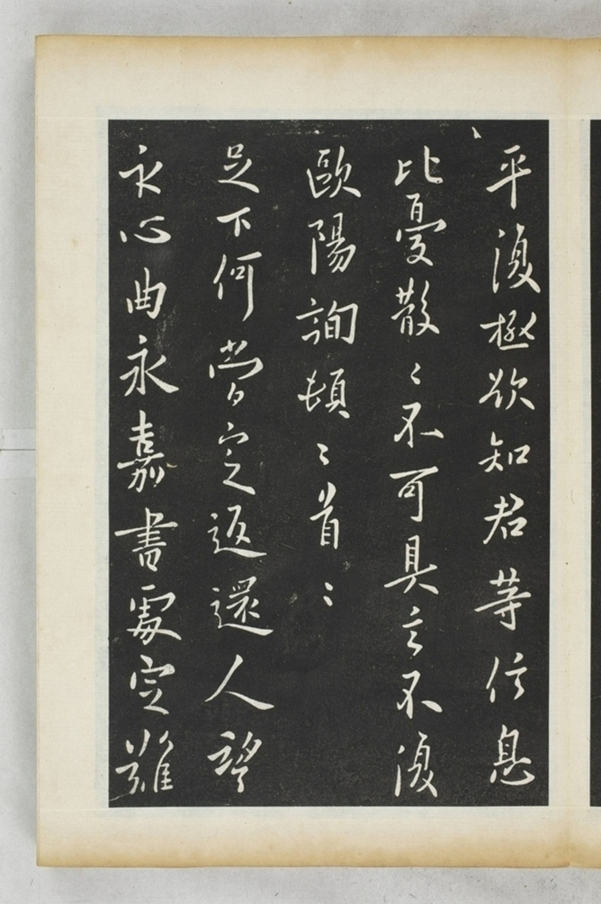 平復極欲知君等信息
比憂散〻不可具言不復
歐陽詢頓〻首〻
足下何嘗定返還人望
永心曲永嘉書處定難